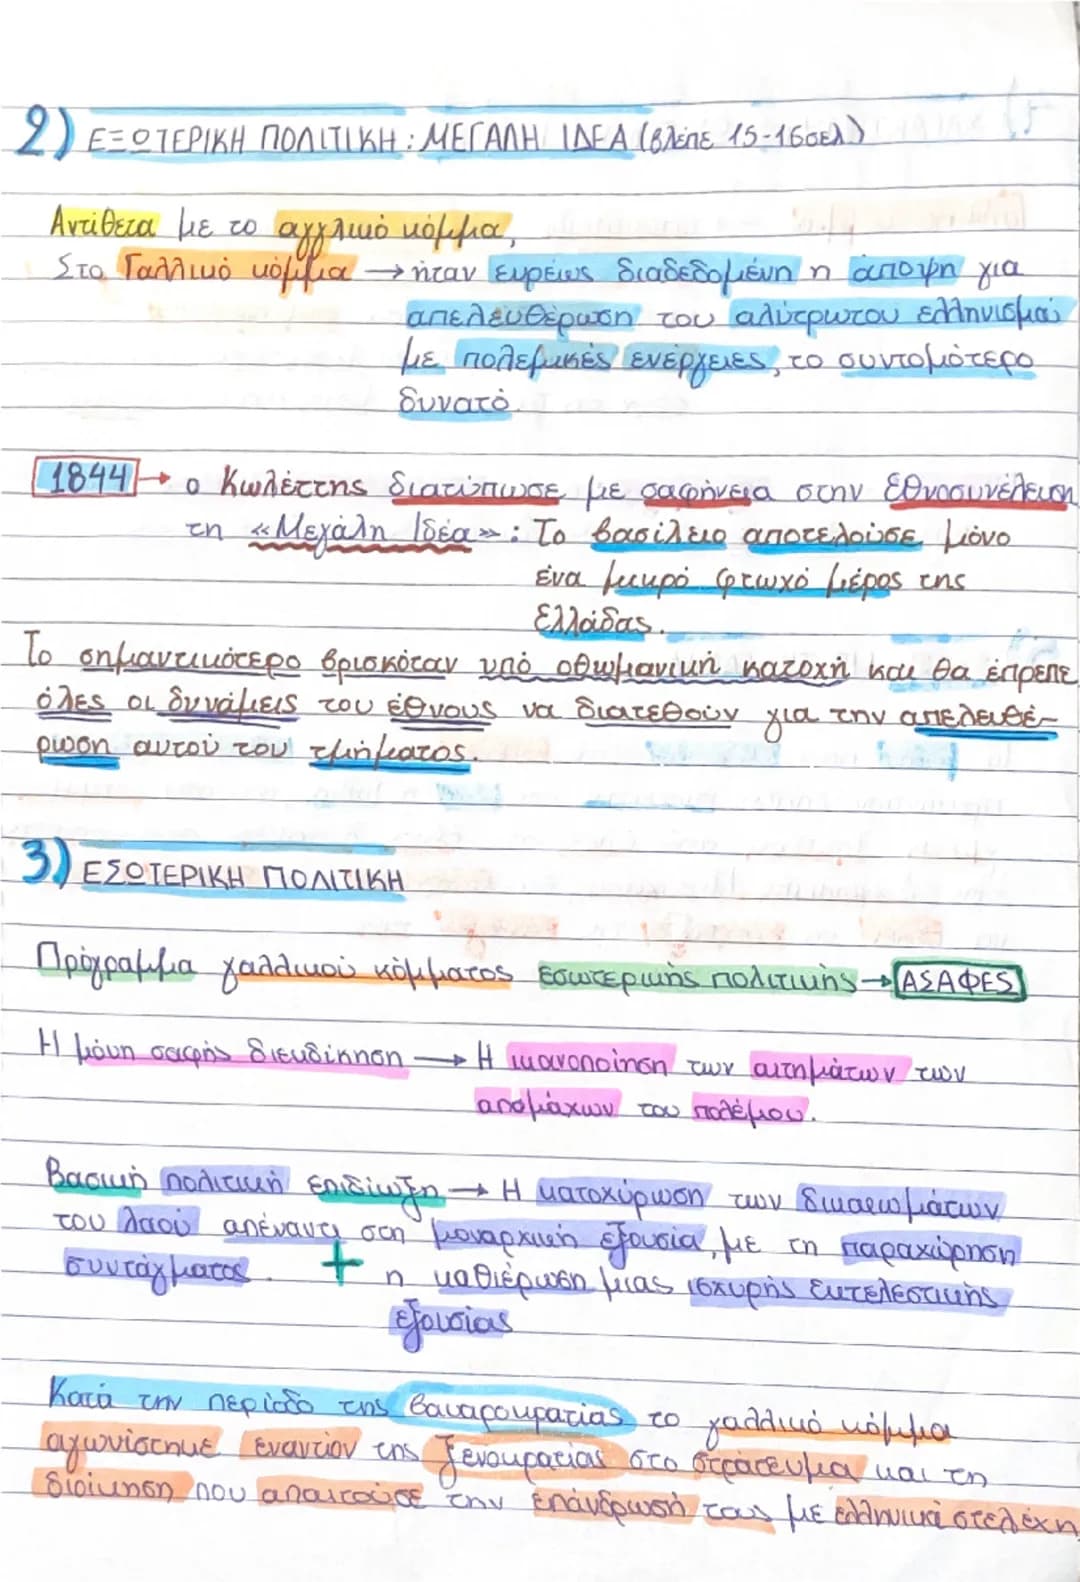 2) ΕΞΩΤΕΡΙΚΗ ΠΟΛΙΤΙΚΗ: ΜΕΓΑΛΗ ΙΔΕΑ (βλέπε 15-16σελ)
Αντίθετα με το αγγλικό κόμμα,
Στο Γαλλικό κόμμα → ήταν ευρέως διαδεδομένη η άποψη για
απελευθέρωση του αλύτρωτου ελληνισμού
με πολεμικές ενέργειες, το συντομότερο
δυνατό.
1844 → ο Κωλέττης διατύπωσε με σαφήνεια στην Εθνοσυνέλευση
τη «Μεγάλη Ιδέα»: Το βασίλειο αποτελούσε μόνο
ένα μικρό φτωχό μέρος της
Ελλάδας.
Το σημαντικότερο βρισκόταν υπό οθωμανική κατοχή και θα έπρεπε
όλες οι δυνάμεις του έθνους να διατεθούν για την απελευθέ-
ρωση αυτού του τμήματος.
3) ΕΣΩΤΕΡΙΚΗ ΠΟΛΙΤΙΚΗ
Πρόγραμμα γαλλικού κόμματος εσωτερικής πολιτικής → ΑΣΑΦΕΣ
Η μόνη σαφής διεκδίκηση → Η ικανοποίηση των αιτημάτων των
απομάχων του πολέμου.
Βασική πολιτική επιδίωξη → Η κατοχύρωση των δικαιωμάτων
του λαού απέναντι στη μοναρχική εξουσία, με τη παραχώρηση
συντάγματος. + η καθιέρωση μιας ισχυρής εκτελεστικής
εξουσίας
Κατά την περίοδο της βαυαροκρατίας το γαλλικό κόμμα
αγωνίστηκε εναντίον της ξενοκρατίας στο στράτευμα και τη
διοίκηση που απαιτούσε την επάνδρωσή τους με ελληνικά στελέχη